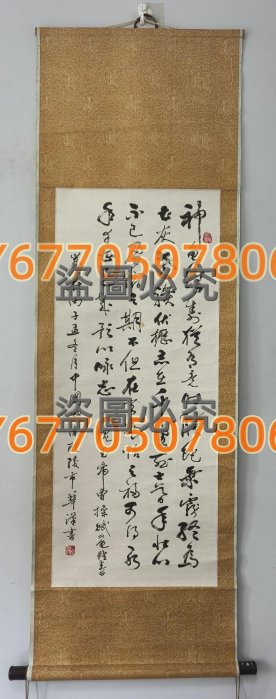 神龜雖壽猶有竟時騰蛇乘霧終為
土灰老驥伏櫪志在千里烈士暮年壯心
不已盈縮之期不但在天養怡之福可得永
年幸甚至哉歌以詠志 帝曹操
丙子 月中國 陵市華洋書
Y6770507806
盜圖必究
Y6770507806
盜圖必究
Y6770507806